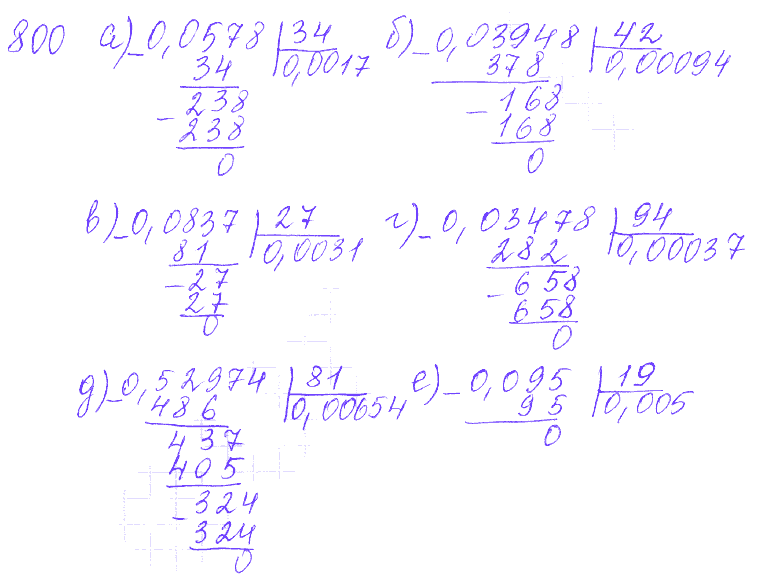 800 а) _0,0578 |34 б) _0,03948 |42
34 0,0017 378 0,00094
_238 _168
238 168
0 0
в) _0,0837 |27 г) _0,03478 |94
81 0,0031 282 0,00037
_27 _658
27 658
0 0
д) _0,52974 |81 е) _0,095 |19
486 0,00654 95 0,005
437 0
405
_324
324
0